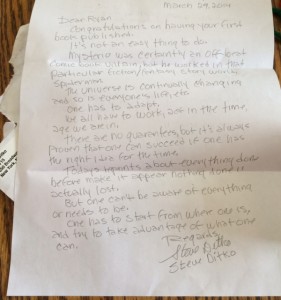 March 29, 2014
Dear Bryan
Congratulations on having your first
book published.
It's not an easy thing to do
Mysterio was certainly an off-beat
comic book villain, but he worked in that
particular fiction/fantasy story world
Spiderman.
The universe is continually changing
and so is everyone's life, etc.
One has to adapt.
We all have to work, act in the time,
age we are in.
There are no guarantees, but it's always
proven that one can succeed if one has
the right idea for the time.
Today's reprints about everything done
before make it appear nothing done is
actually lost.
But one can't be aware of everything
or needs to be.
One has to start from where one is,
and try to take advantage of what one
can.
Regards,
Steve Ditko
Steve Ditko